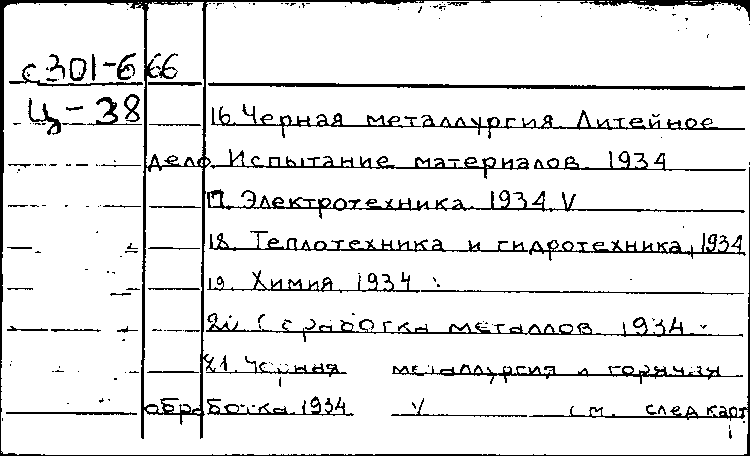 с301-6 66
Ц-38
16. Черная металлургия. Литейное
дело. Испытание материалов. 1934
17. Электротехника. 1934. V
18. Теплотехника и гидротехника, 1934
19. Химия. 1934
20. Обработка металлов. 1934
21. Черная металлургия и горячая
обработка. 1934 V см. след карт